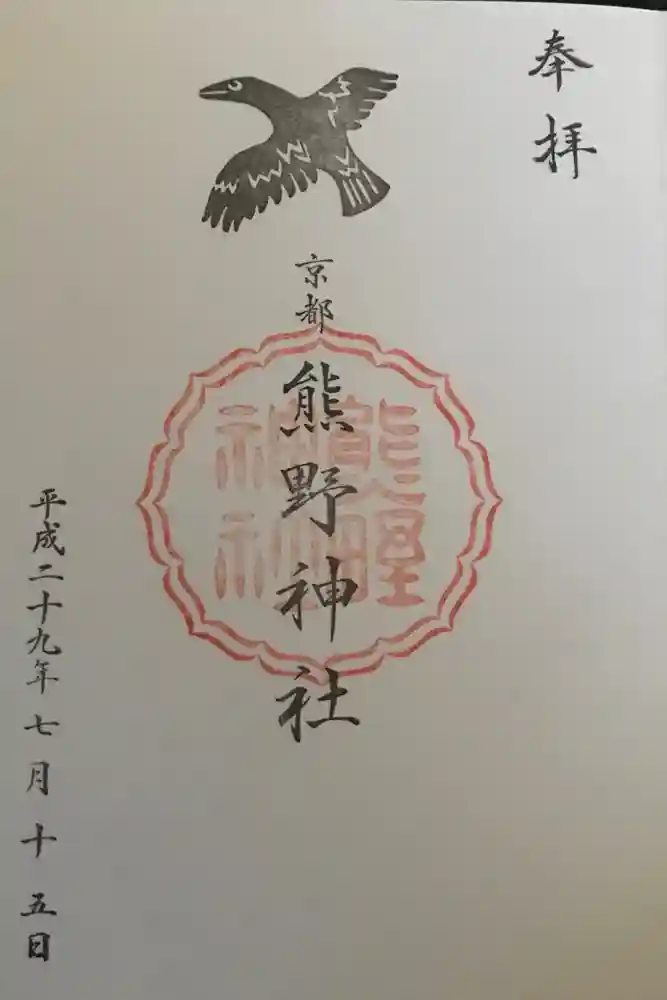 奉拝
京都
熊野神社
熊野
神社
平成二十九年七月十五日